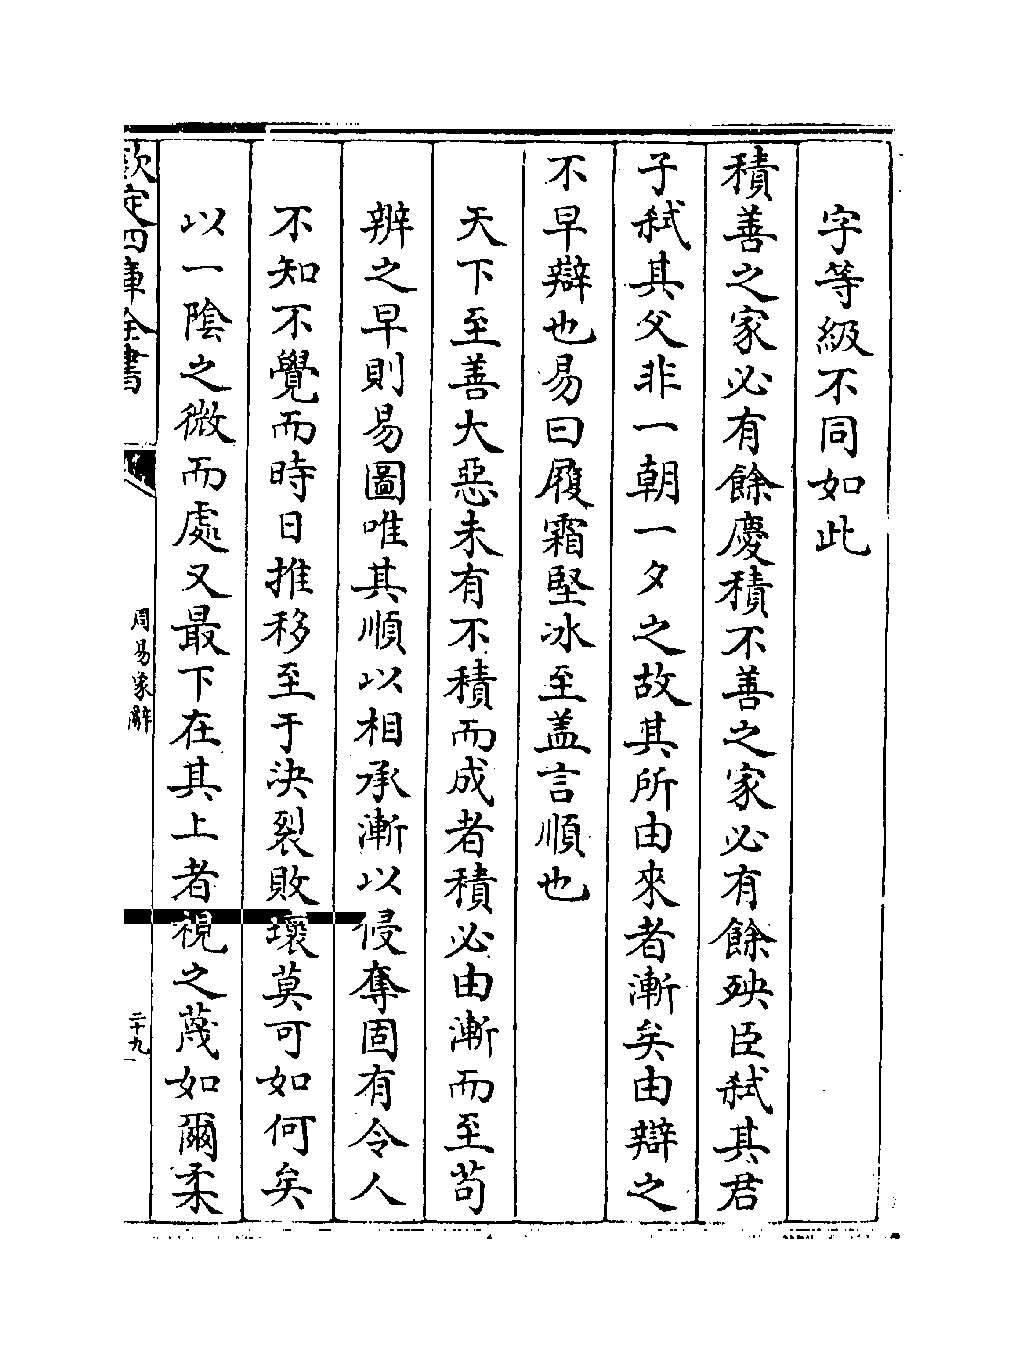 字等級不同如此
積善之家必有餘慶積不善之家必有餘殃臣弑其君
子弑其父非一朝一夕之故其所由來者漸矣由辯之
不早辯也易曰履霜堅冰至盖言順也
天下至善大惡未有不積而成者積必由漸而至茍
辨之早則易圖唯其順以相承漸以侵奪固有令人
不知不覺而時日推移至于決裂敗壞莫可如何矣
以一陰之微而處又最下在其上者視之蔑如爾柔
欽定四庫全書
周易象辭
二十九